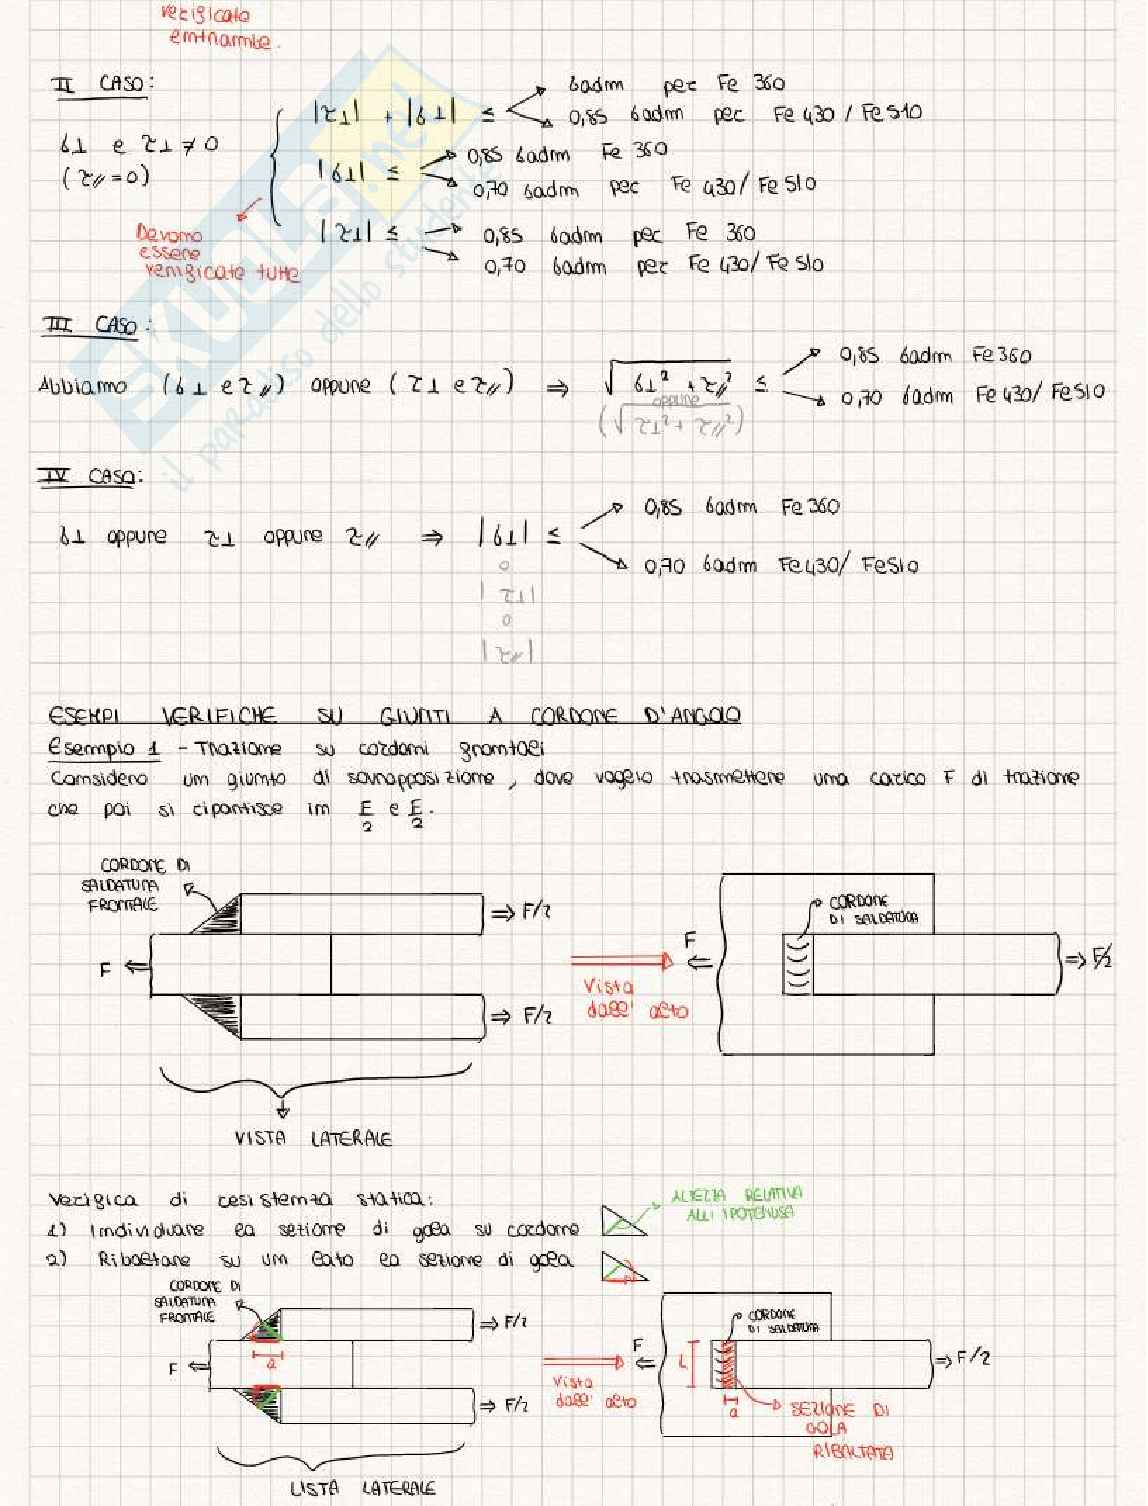 verificate
entrambe.
II CASO:
σ⊥ e τ⊥ ≠ 0
(τ// = 0)
|τ⊥| + |σ⊥| ≤
σadm per Fe 360
0,85 σadm per Fe 430 / Fe 510
|σ⊥| ≤
0,85 σadm Fe 360
0,70 σadm per Fe 430/ Fe 510
|τ⊥| ≤
0,85 σadm per Fe 360
0,70 σadm per Fe 430/ Fe 510
Devono
essere
verificate tutte
III CASO:
Abbiamo (σ⊥ e τ//) oppure (τ⊥ e τ//) ⇒ √σ⊥² + τ//² ≤
oppure
(√τ⊥² + τ//²)
0,85 σadm Fe 360
0,70 σadm Fe 430/ Fe 510
IV CASO:
σ⊥ oppure τ⊥ oppure τ// ⇒ |σ⊥| ≤
o
|τ⊥|
o
|τ//|
0,85 σadm Fe 360
0,70 σadm Fe 430/ Fe 510
ESEMPI VERIFICHE SU GIUNTI A CORDONE D'ANGOLO
Esempio 1 - Trazione su cordoni frontali
Considero un giunto di sovrapposizione, dove voglio trasmettere una carico F di trazione
che poi si ripartisce in F/2 e F/2.
CORDONE DI
SALDATURA
FRONTALE
F
F/2
F/2
VISTA LATERALE
Vista
dall' alto
F
CORDONE
DI SALDATURA
F/2
Verifica di resistenza statica:
1) Individuare la sezione di gola su cordone
ALTEZZA RELATIVA
ALL' IPOTENUSA
2) Ribaltare su un lato la sezione di gola
CORDONE DI
SALDATURA
FRONTALE
F
a
F/2
F/2
LISTA LATERALE
Vista
dall' alto
F
CORDONE
DI SALDATURA
L
a
F/2
SEZIONE DI
GOLA
RIBALTATA
SKUOLA.net
il paradiso dello studente